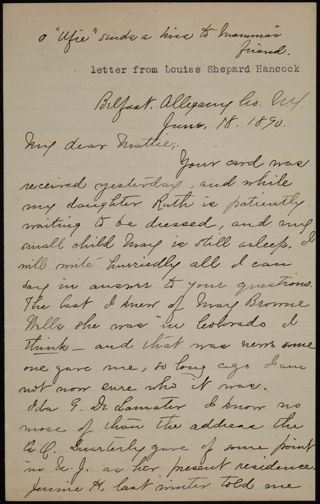 o "Ufie" sends a kiss to Mamma's
friend.
letter from Louise Shepard Hancock
Belfast. Allegany Co. N.Y.
June. 18. 1890.
My dear Mattie;
Your card was
received yesterday, and while
my daughter Ruth is patiently
waiting to be dressed, and my
small child Mary is still asleep, I
will write hurriedly all I can
say in answer to your questions.
The last I knew of Mary Browne
Wells she was in Colorado I
think – and that was news some
one gave me, so long ago I am
not now sure who it was.
Ida G. De Lamater I know no
more of than the address the
Quarterly gave of some point
in N. J. as her present residence.
Jennie H. last winter told me